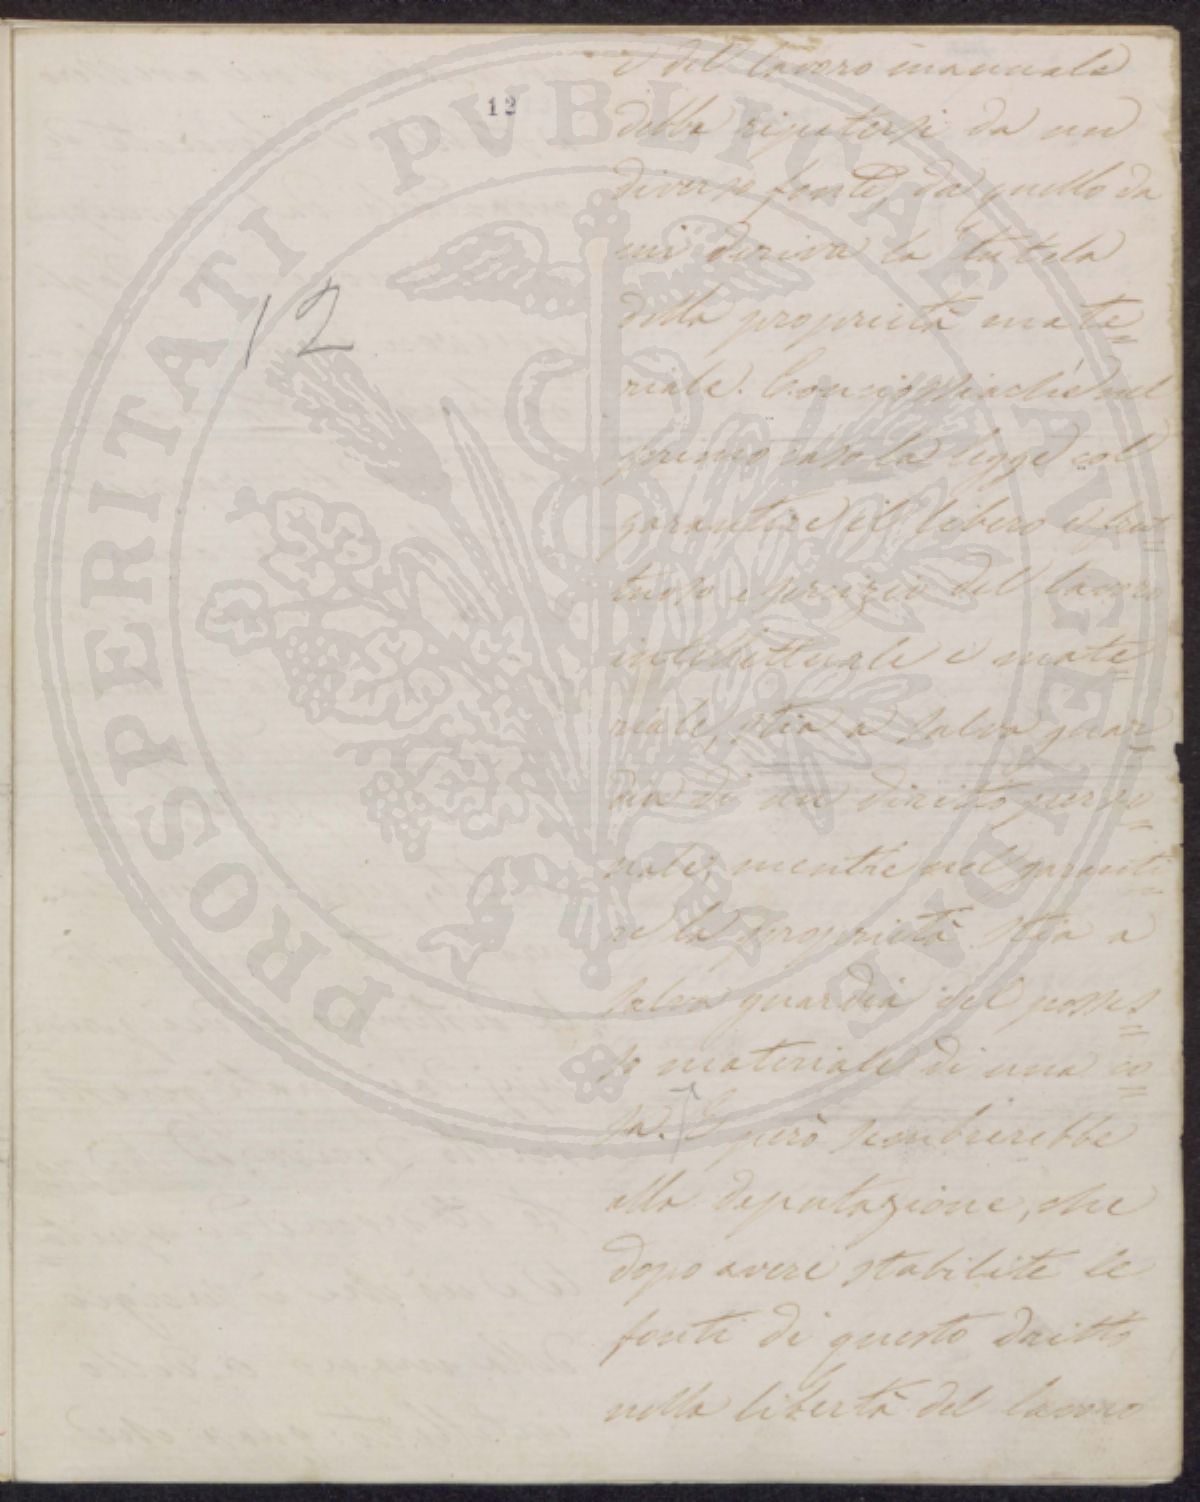 12
12
e del lavoro manuale
debba ripetersi da un
diverso fonte, da quello da
cui deriva la tutela
della proprietà mate=
riale. Conciossiachè nel
primo caso la legge col
garantire il libero e frut=
tuoso esercizio del lavoro
intellettuale e mate=
riale, stia a salva guar=
dia di un diritto perso=
nale; mentre nel garanti=
re la proprietà stia a
salva guardia del posses=
so materiale di una co=
sa. E però sembrerebbe
alla deputazione, che
dopo avere stabilite le
fonti di questo dritto
nella libertà del lavoro
PROSPERITATI PVBLICAE AVGENDAE